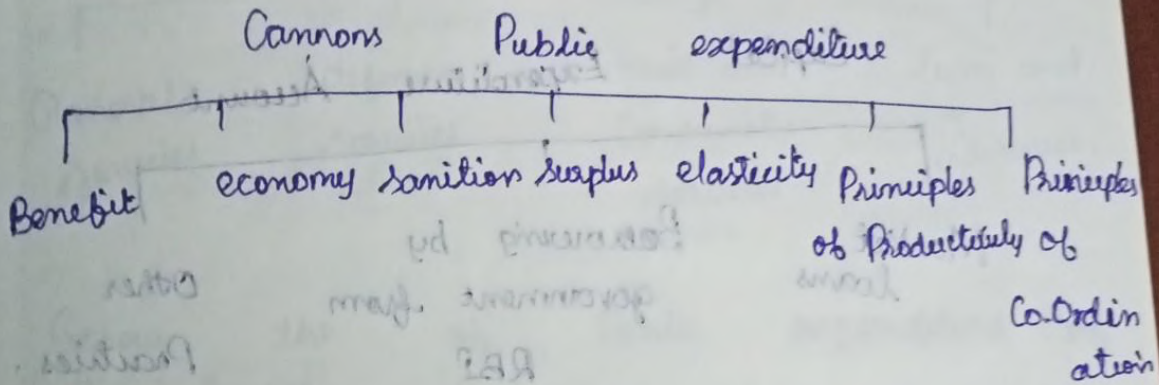 Cannons Public expenditure
Benefit economy sanition surplus elasticity Principles Principles
of Productively of
Co.Ordin
ation